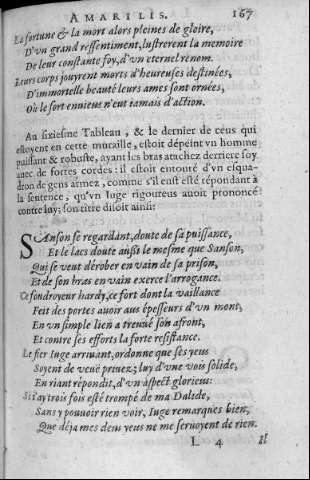 AMARILIS. 167
La fortune & la mort alors pleines de gloire,
D'vn grand ressentiment, lustrerent la memoire
De leur constante foy, d'vn eternel renom.
Leurs corps jouyrent morts d'heureuses destinées,
D'immortelle beauté leurs ames sont ornées,
Où le sort enuieus n'eut iamais d'action.
Au sixiesme Tableau, & le dernier de ceus qui
estoyent en cette muraille, estoit dépeint vn homme
puissant & robuste, ayant les bras attachez derriere soy
auec de fortes cordes: il estoit entouré d'vn esqua-
dron de gens armez, comme s'il eust esté répondant à
la sentence, qu'vn Iuge rigoureus auoit prononcé
contre luy; son titre disoit ainsi:
SAnson se regardant, doute de sa puissance,
Et le lacs doute aussi le mesme que Sanson,
Qui se veut dérober en vain de sa prison,
Et de son bras en vain exerce l'arrogance.
Ce foudroyeur hardy, ce fort dont la vaillance
Feit des portes auoir aus épesseurs d'vn mont,
En vn simple lien a treuué son afront,
Et contre ses efforts la forte resistance.
Le fier Iuge arriuant, ordonne que ses yeus
Soyent de veuë priuez; luy d'vne vois solide,
En riant répondit, d'vn aspect glorieus:
Si i'ay trois fois esté trompé de ma Dalide,
Sans y pouuoir rien voir, Iuge remarques bien,
Que déja mes deus yeus ne me seruoyent de rien.
L 4 Il